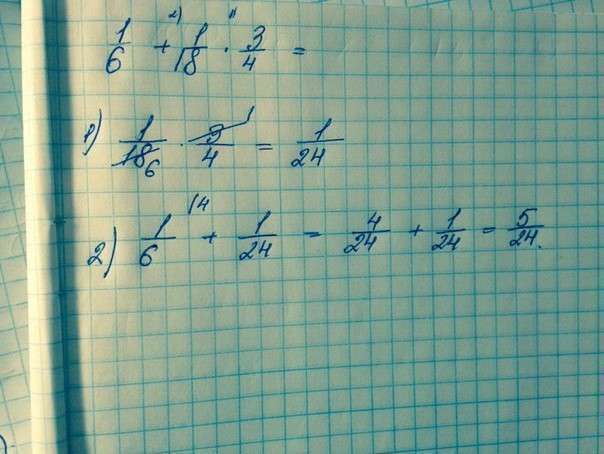 1/6 + 1/18 · 3/4 =
1) 1/18 6 · 3/4 1 = 1/24
2) 1/6 /4 + 1/24 = 4/24 + 1/24 = 5/24.